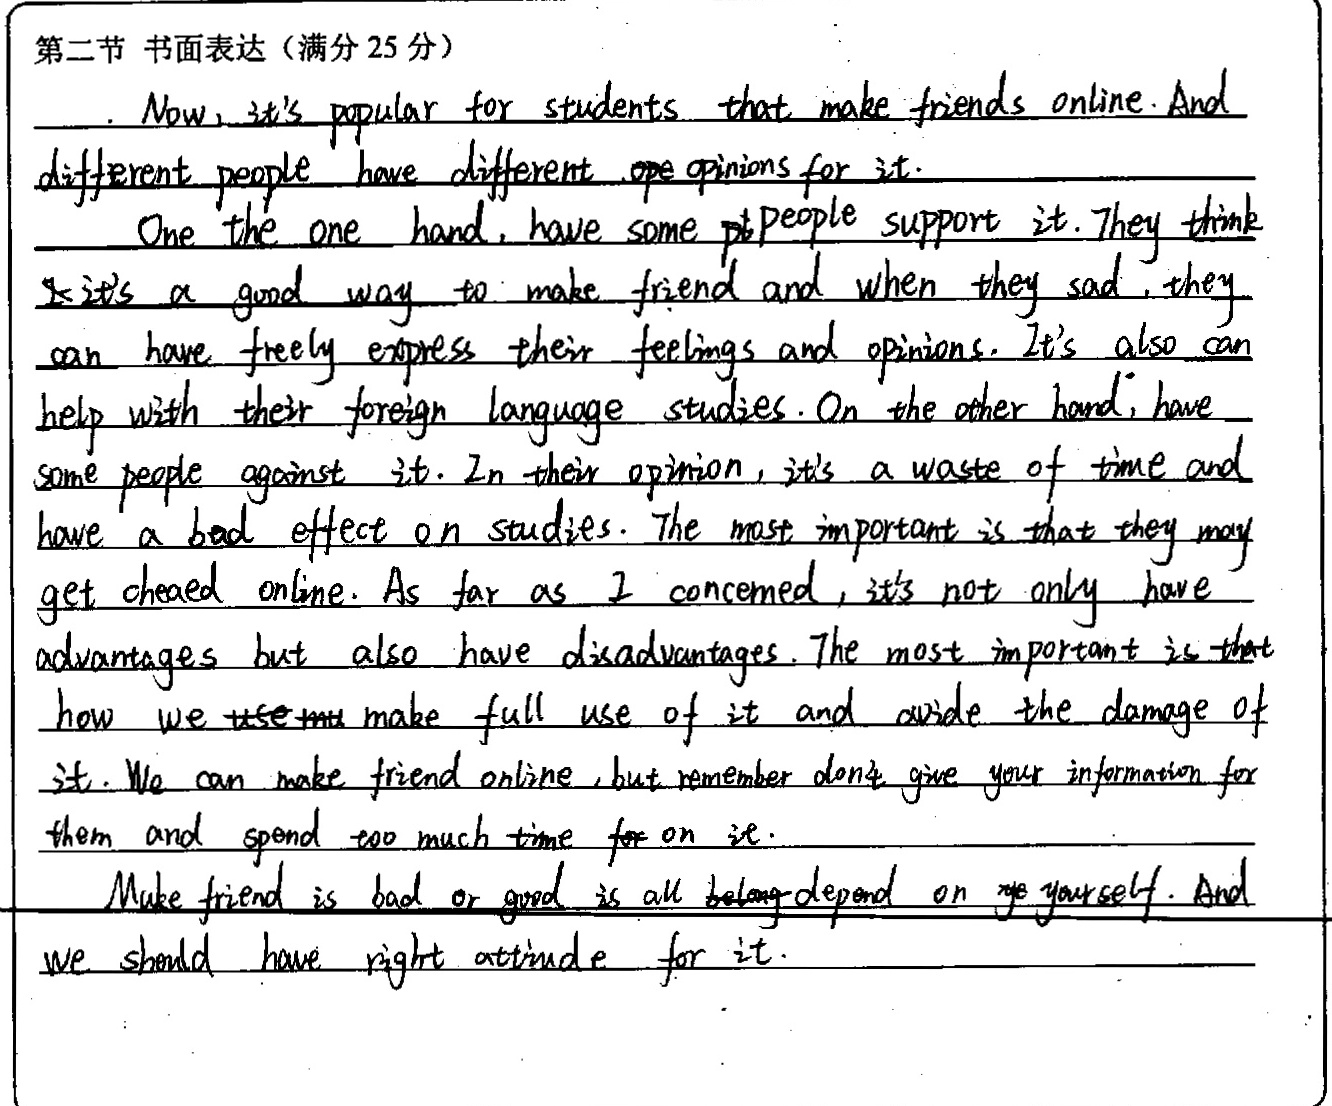 第二节 书面表达（满分 25 分）
Now, it's popular for students that make friends online. And
different people have different ope opinions for it.
One the one hand, have some pt people support it. They think
it's a good way to make friend and when they sad, they
can have freely express their feelings and opinions. It's also can
help with their foreign language studies. On the other hand, have
some people against it. In their opinion, it's a waste of time and
have a bad effect on studies. The most important is that they may
get cheaed online. As far as I concerned, it's not only have
advantages but also have disadvantages. The most important is that
how we use mu make full use of it and avide the damage of
it. We can make friend online, but remember don't give your information for
them and spend too much time for on it.
Make friend is bad or good is all belong depend on ye yourself. And
we should have right attinde for it.